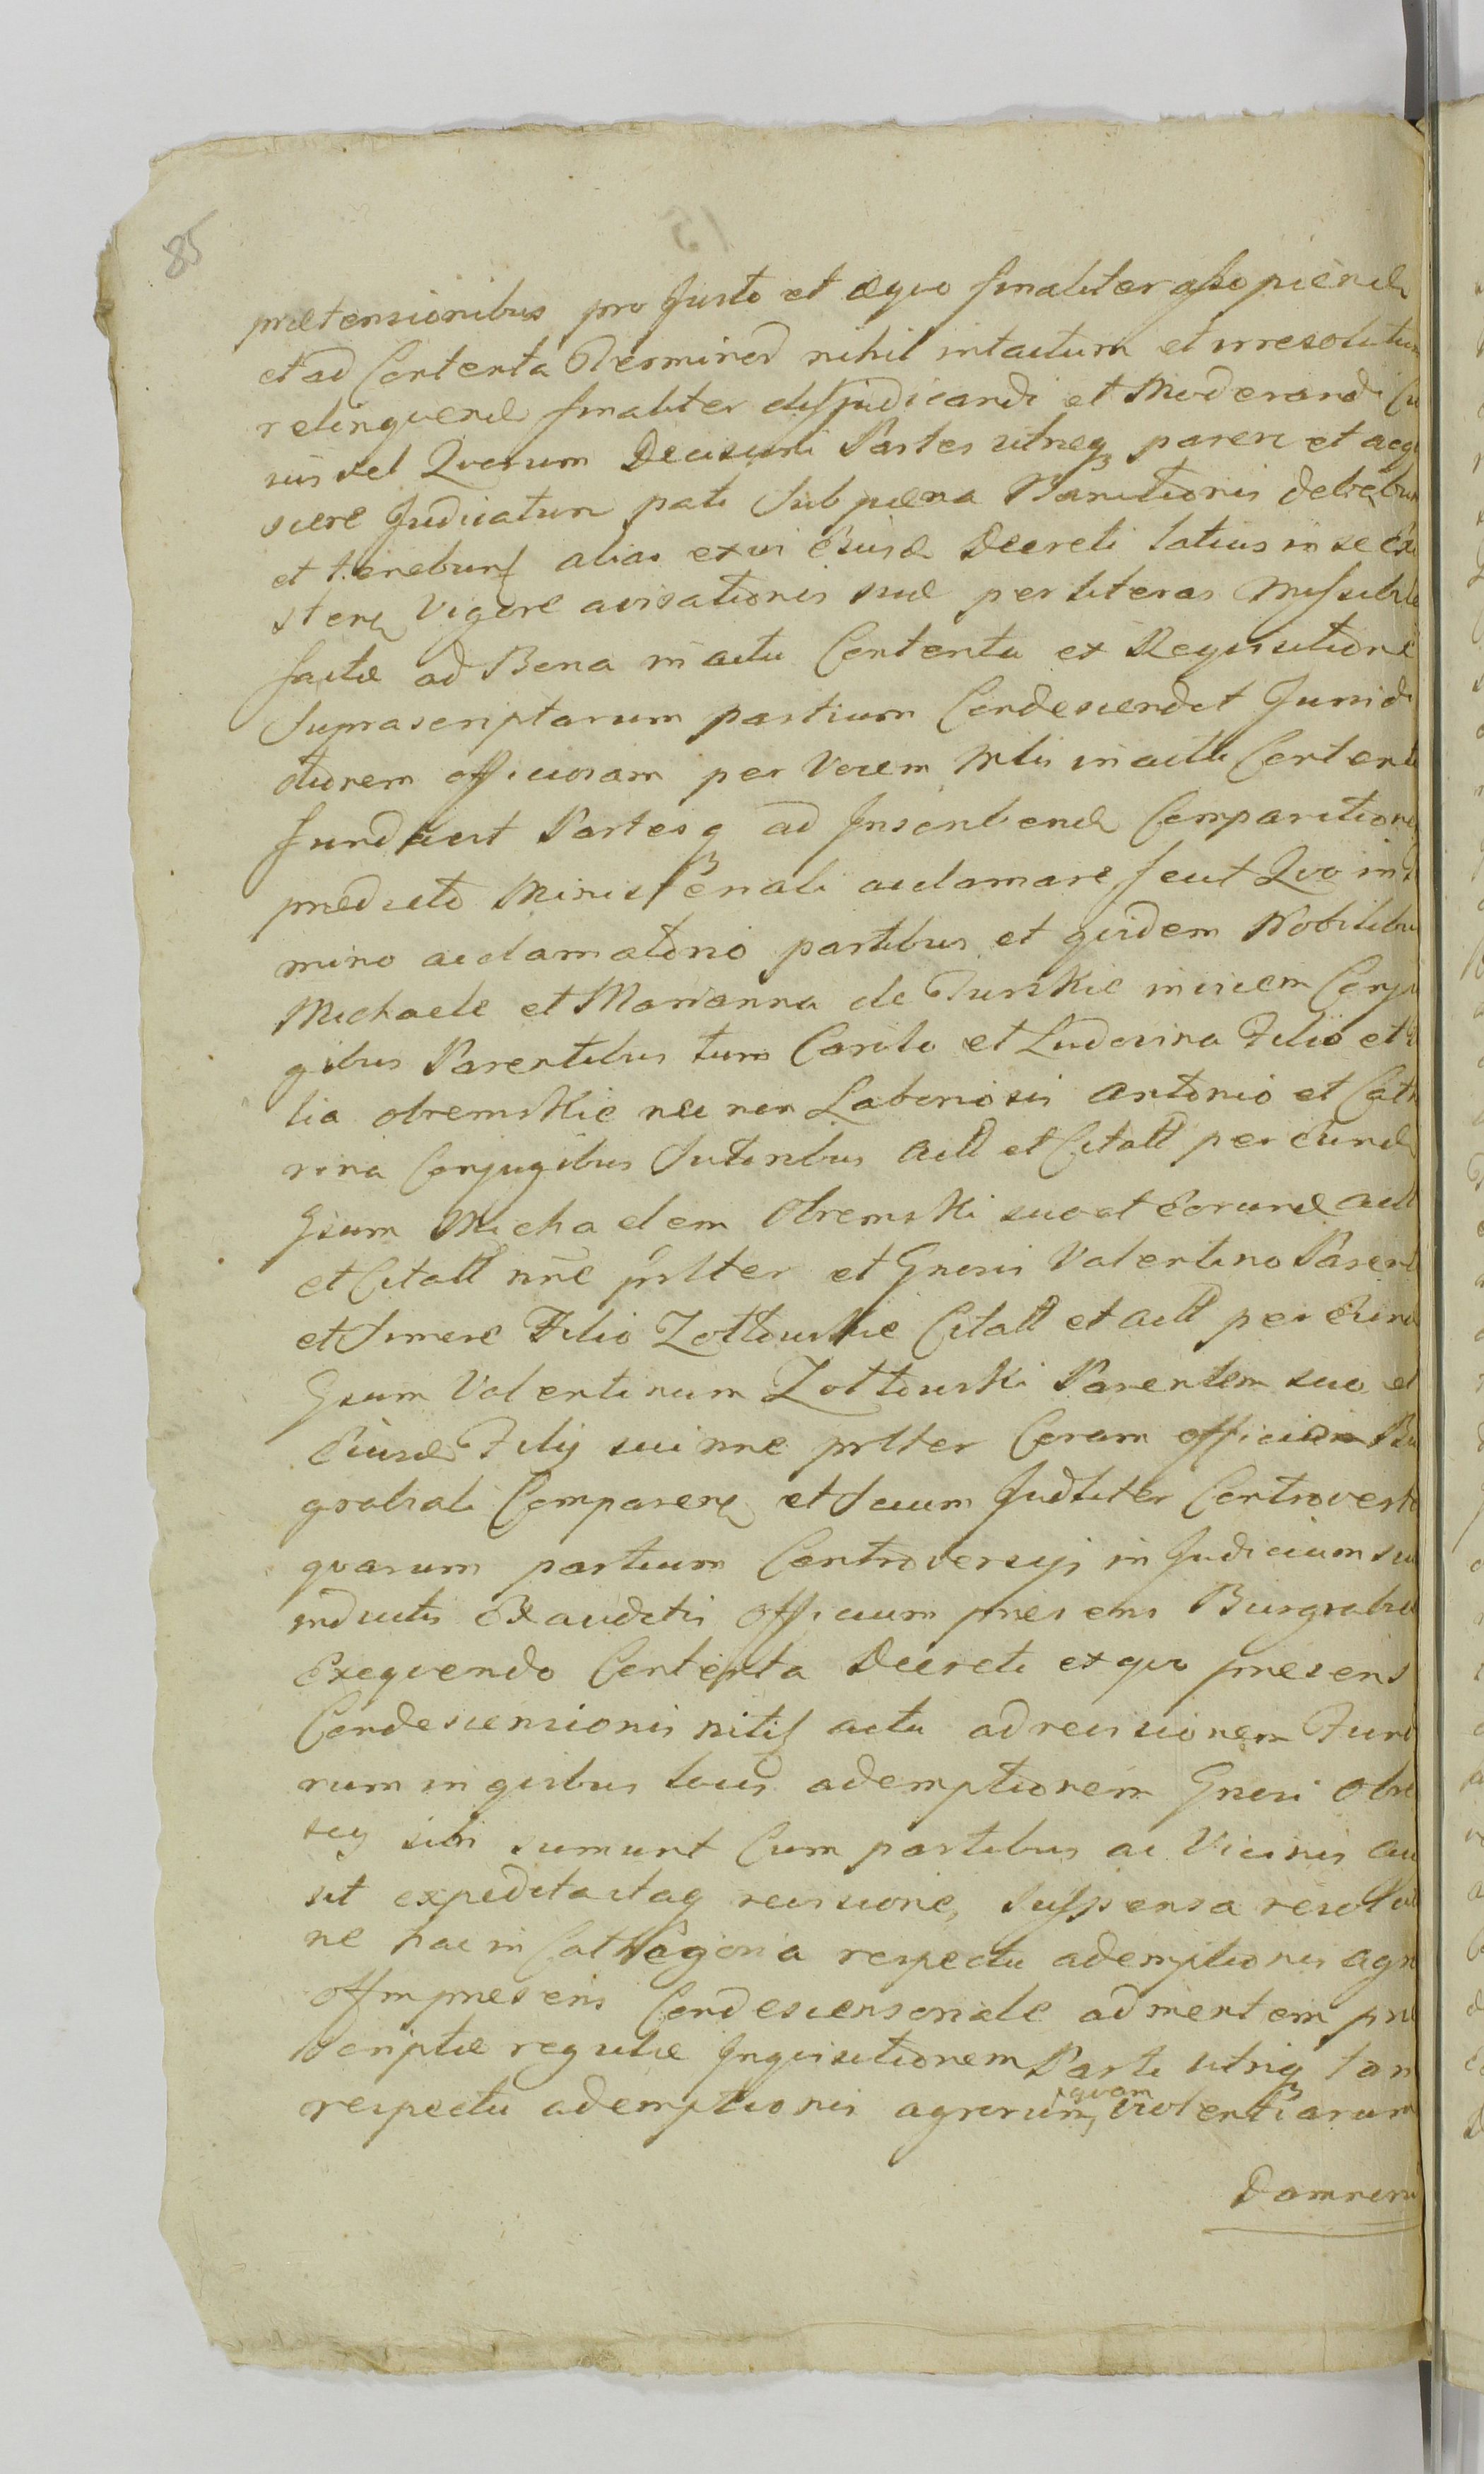 85
prætensionibus pro Justo et æquo finaliter assopiend
et ad Contenta Terminod nihil intactum et irresolutum
relinquend finaliter disjudicandi et Moderandi Cu
ius vel Quorum Decisioni Partes utræq pareri et acq
scere Judicatum pati sub pæna Banitionis debebun
et tenebunt alias ex vi Eiusd Decreti latius in se Exi
sten Vigore avisationis suæ per literas Missiles
factæ ad Bona in actu Contenta ex Requisitione
suprascriptarum partium Condescendit Jurisdi
ctionem officiosam per Vocem Mlis in actu Content
fundavit Partesq ad Inscribend Comparitiones
prædicto Ministeriali acclamare fecit Quo in
mino acclamatorio partibus et quidem Nobilibus
Michaele et Marianna de Turskie invicem Conju
gibus Parentibus tum Carolo et Ludovina Filio et
lia Obremskie nec non Laboriosis Antonio et Cath
rina Conjugibus Subditibus Actt et Citatt per Eund
Gsum Michaelem Obremski suo et Eorund actt
et Citatt nne psltter et Gnosis Valentino Parent
et Simone Filio Zottowskie Citatt et Actt per Eund
Gsum Valentinum Zottowski Parentem suo et
Eiusd Filij sui nne psltter Coram officio Bu
grabiali Comparen et secum Judtiter Controvert
quarum partium Controversijs in Judicium su
inductis Exauditis Officium præsens Burgrabia
Exequendo Contenta Decreti ex quo præsens
Condescensionis nitit actu ad revisionem Fund
rum in quibus locis ademptionem Gnosi Obre
scy sibi sumunt Cum partibus ac Vicinis
sit expedita itaq revisione, suspensa resoluti
ne hac in Cathegoria respectu ademptionis agr
Offm præsens Condescensoriale ad mentem præ
scriptæ regulæ Inquisitionem Parti utriq tam
respectu ademptionis agrorum, quam violentiarum
Damnorum